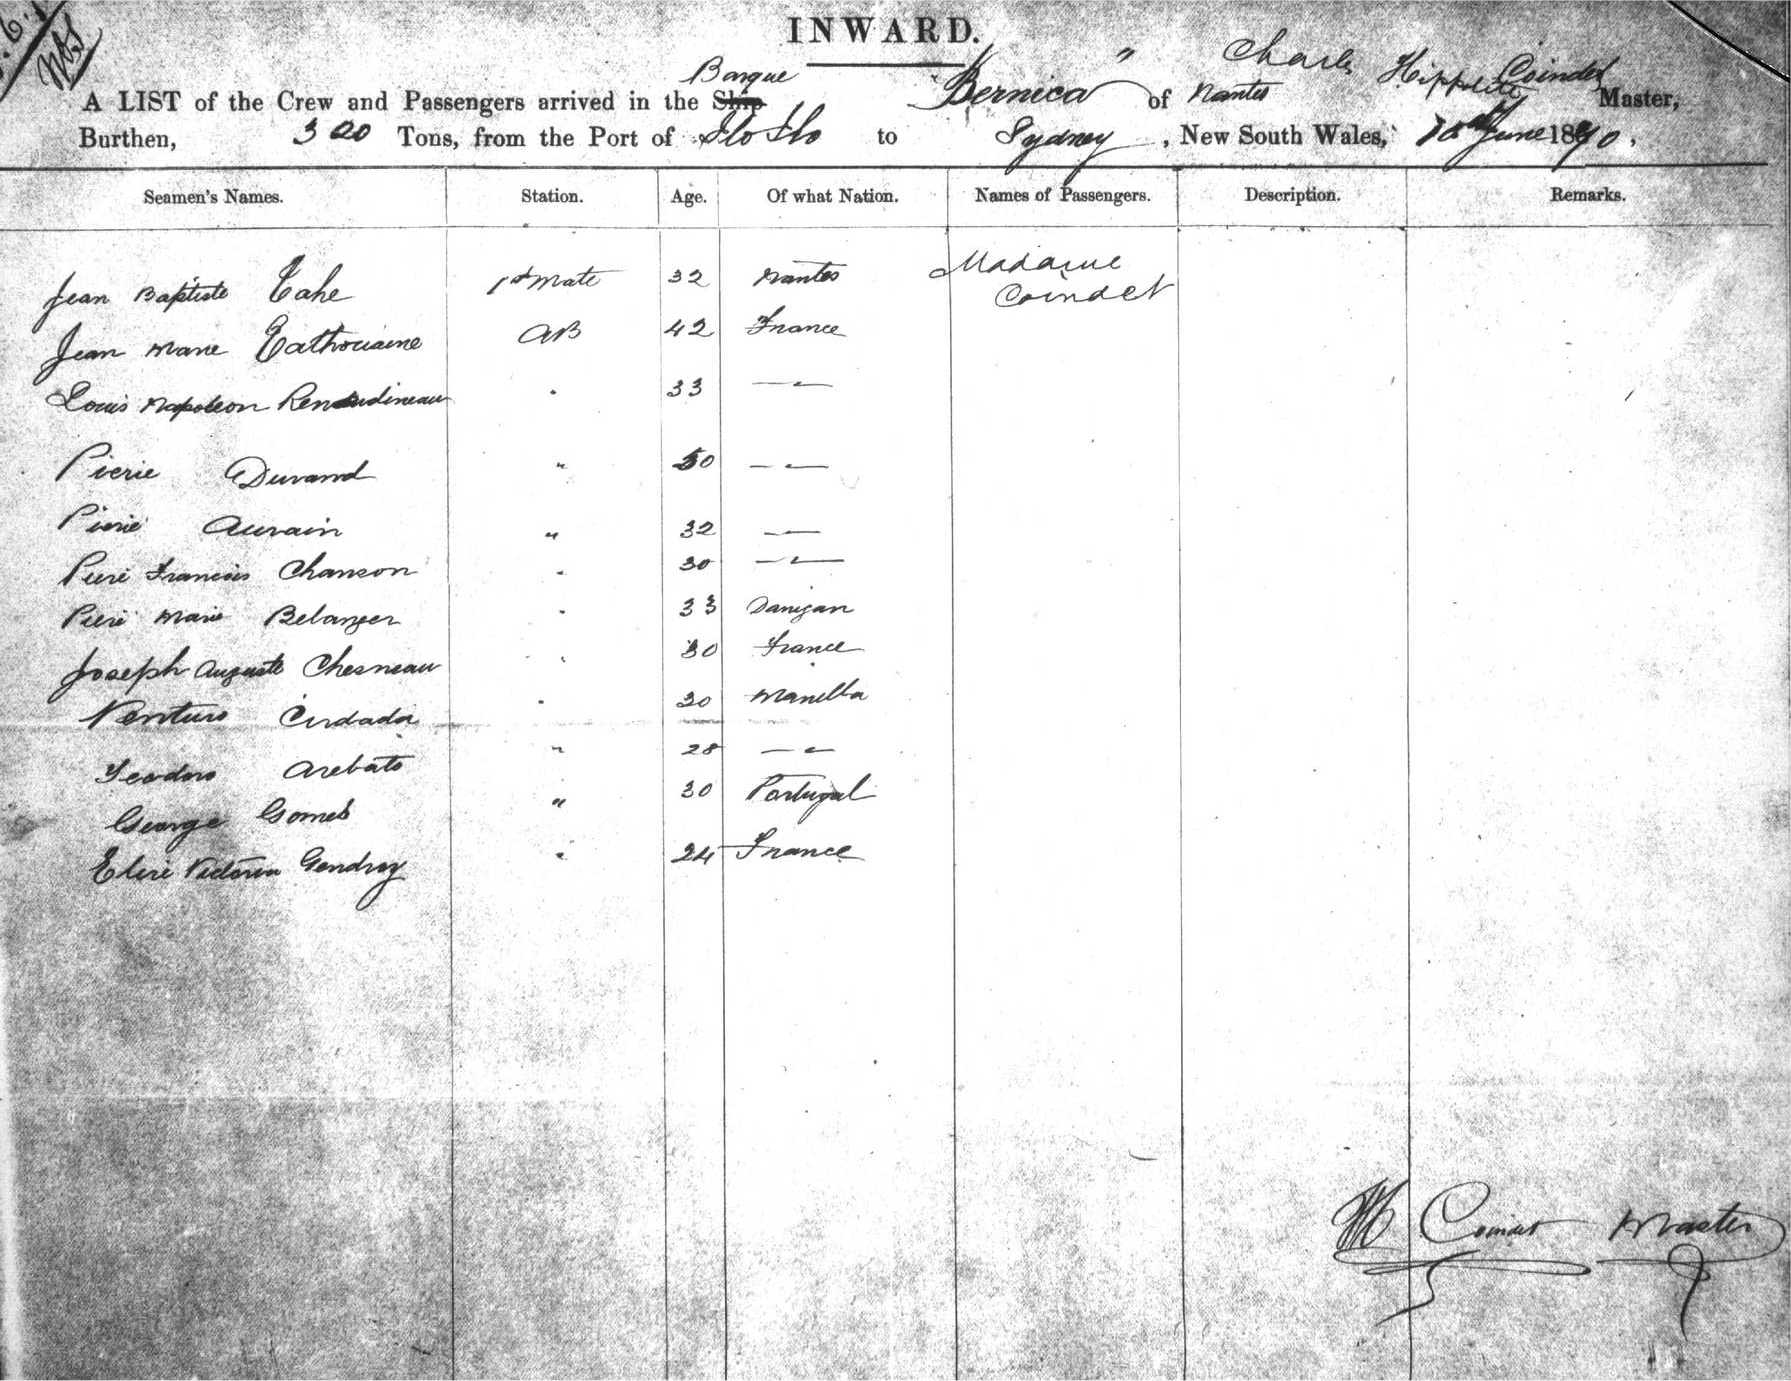 INWARD.
Barque " Charles Hippolite Coindet
A LIST of the Crew and Passengers arrived in the Ship Bernica of Nantes Master,
Burthen, 320 Tons, from the Port of Ilo Ilo to Sydney, New South Wales, June 1890,
Seamen's Names. Station. Age. Of what Nation. Names of Passengers. Description. Remarks.
Jean Baptiste Cahe 1st Mate 32 Nantes Madame
Coindet
Jean Marie AB 42 France
Louis Napoleon Renaudineau " 33 — " —
Pierre Durand " 50 — " —
Pierre Aurain " 32 — " —
Pierre Francois Chanson " 30 — " —
Pierre Marie Belanger " 33
Joseph Auguste Chesneau " 30 France
Venturo " 30 Manilla
Teodoro Arebato " 28 — " —
George Gomes " 30 Portugal
Gendroy " 24 France
Coindet Master